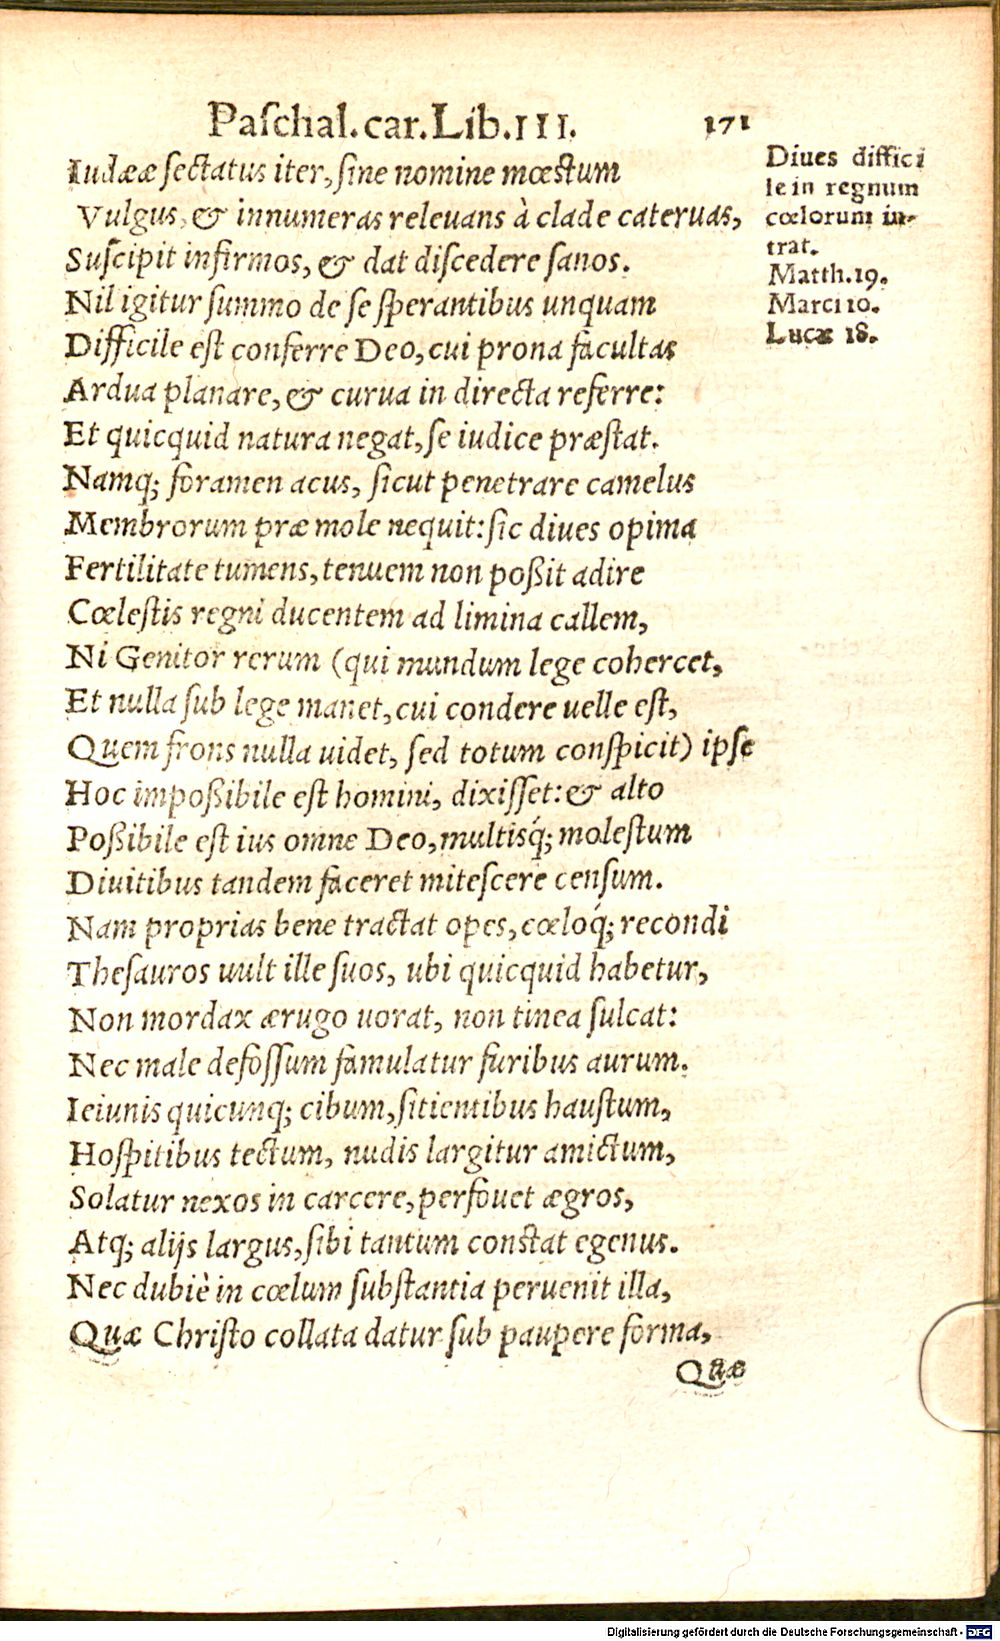 Paſchal. car. Lib. III. 171
Iudææ ſectatus iter, ſine nomine mœſtum
Vulgus, & innumeras releuans à clade cateruas,
Suſcipit infirmos, & dat diſcedere ſanos.
Nil igitur ſummo de ſe ſperantibus unquam
Difficile eſt conferre Deo, cui prona facultas
Ardua planare, & curua in directa referre:
Et quicquid natura negat, ſe iudice præſtat.
Namq; foramen acus, ſicut penetrare camelus
Membrorum præ mole nequit: ſic diues opima
Fertilitate tumens, tenuem non poßit adire
Cœleſtis regni ducentem ad limina callem,
Ni Genitor rerum (qui mundum lege cohercet,
Et nulla ſub lege manet, cui condere uelle eſt,
Quem frons nulla uidet, ſed totum conſpicit) ipſe
Hoc impoßibile eſt homini, dixiſſet: & alto
Poßibile eſt ius omne Deo, multisq́; moleſtum
Diuitibus tandem faceret miteſcere cenſum.
Nam proprias bene tractat opes, cœloq́; recondi
Theſauros uult ille ſuos, ubi quicquid habetur,
Non mordax ærugo uorat, non tinea ſulcat:
Nec male defoſſum famulatur furibus aurum.
Ieiunis quicunq; cibum, ſitientibus hauſtum,
Hoſpitibus tectum, nudis largitur amictum,
Solatur nexos in carcere, perfouet ægros,
Atq; alijs largus, ſibi tantum conſtat egenus.
Nec dubiè in cœlum ſubſtantia peruenit illa,
Quæ Chriſto collata datur ſub paupere forma,
Quæ
Diues diffici
le in regnum
cœlorum in-
trat.
Matth. 19.
Marci 10.
Lucæ 18.
Digitalisierung gefördert durch die Deutsche Forschungsgemeinschaft - DFG